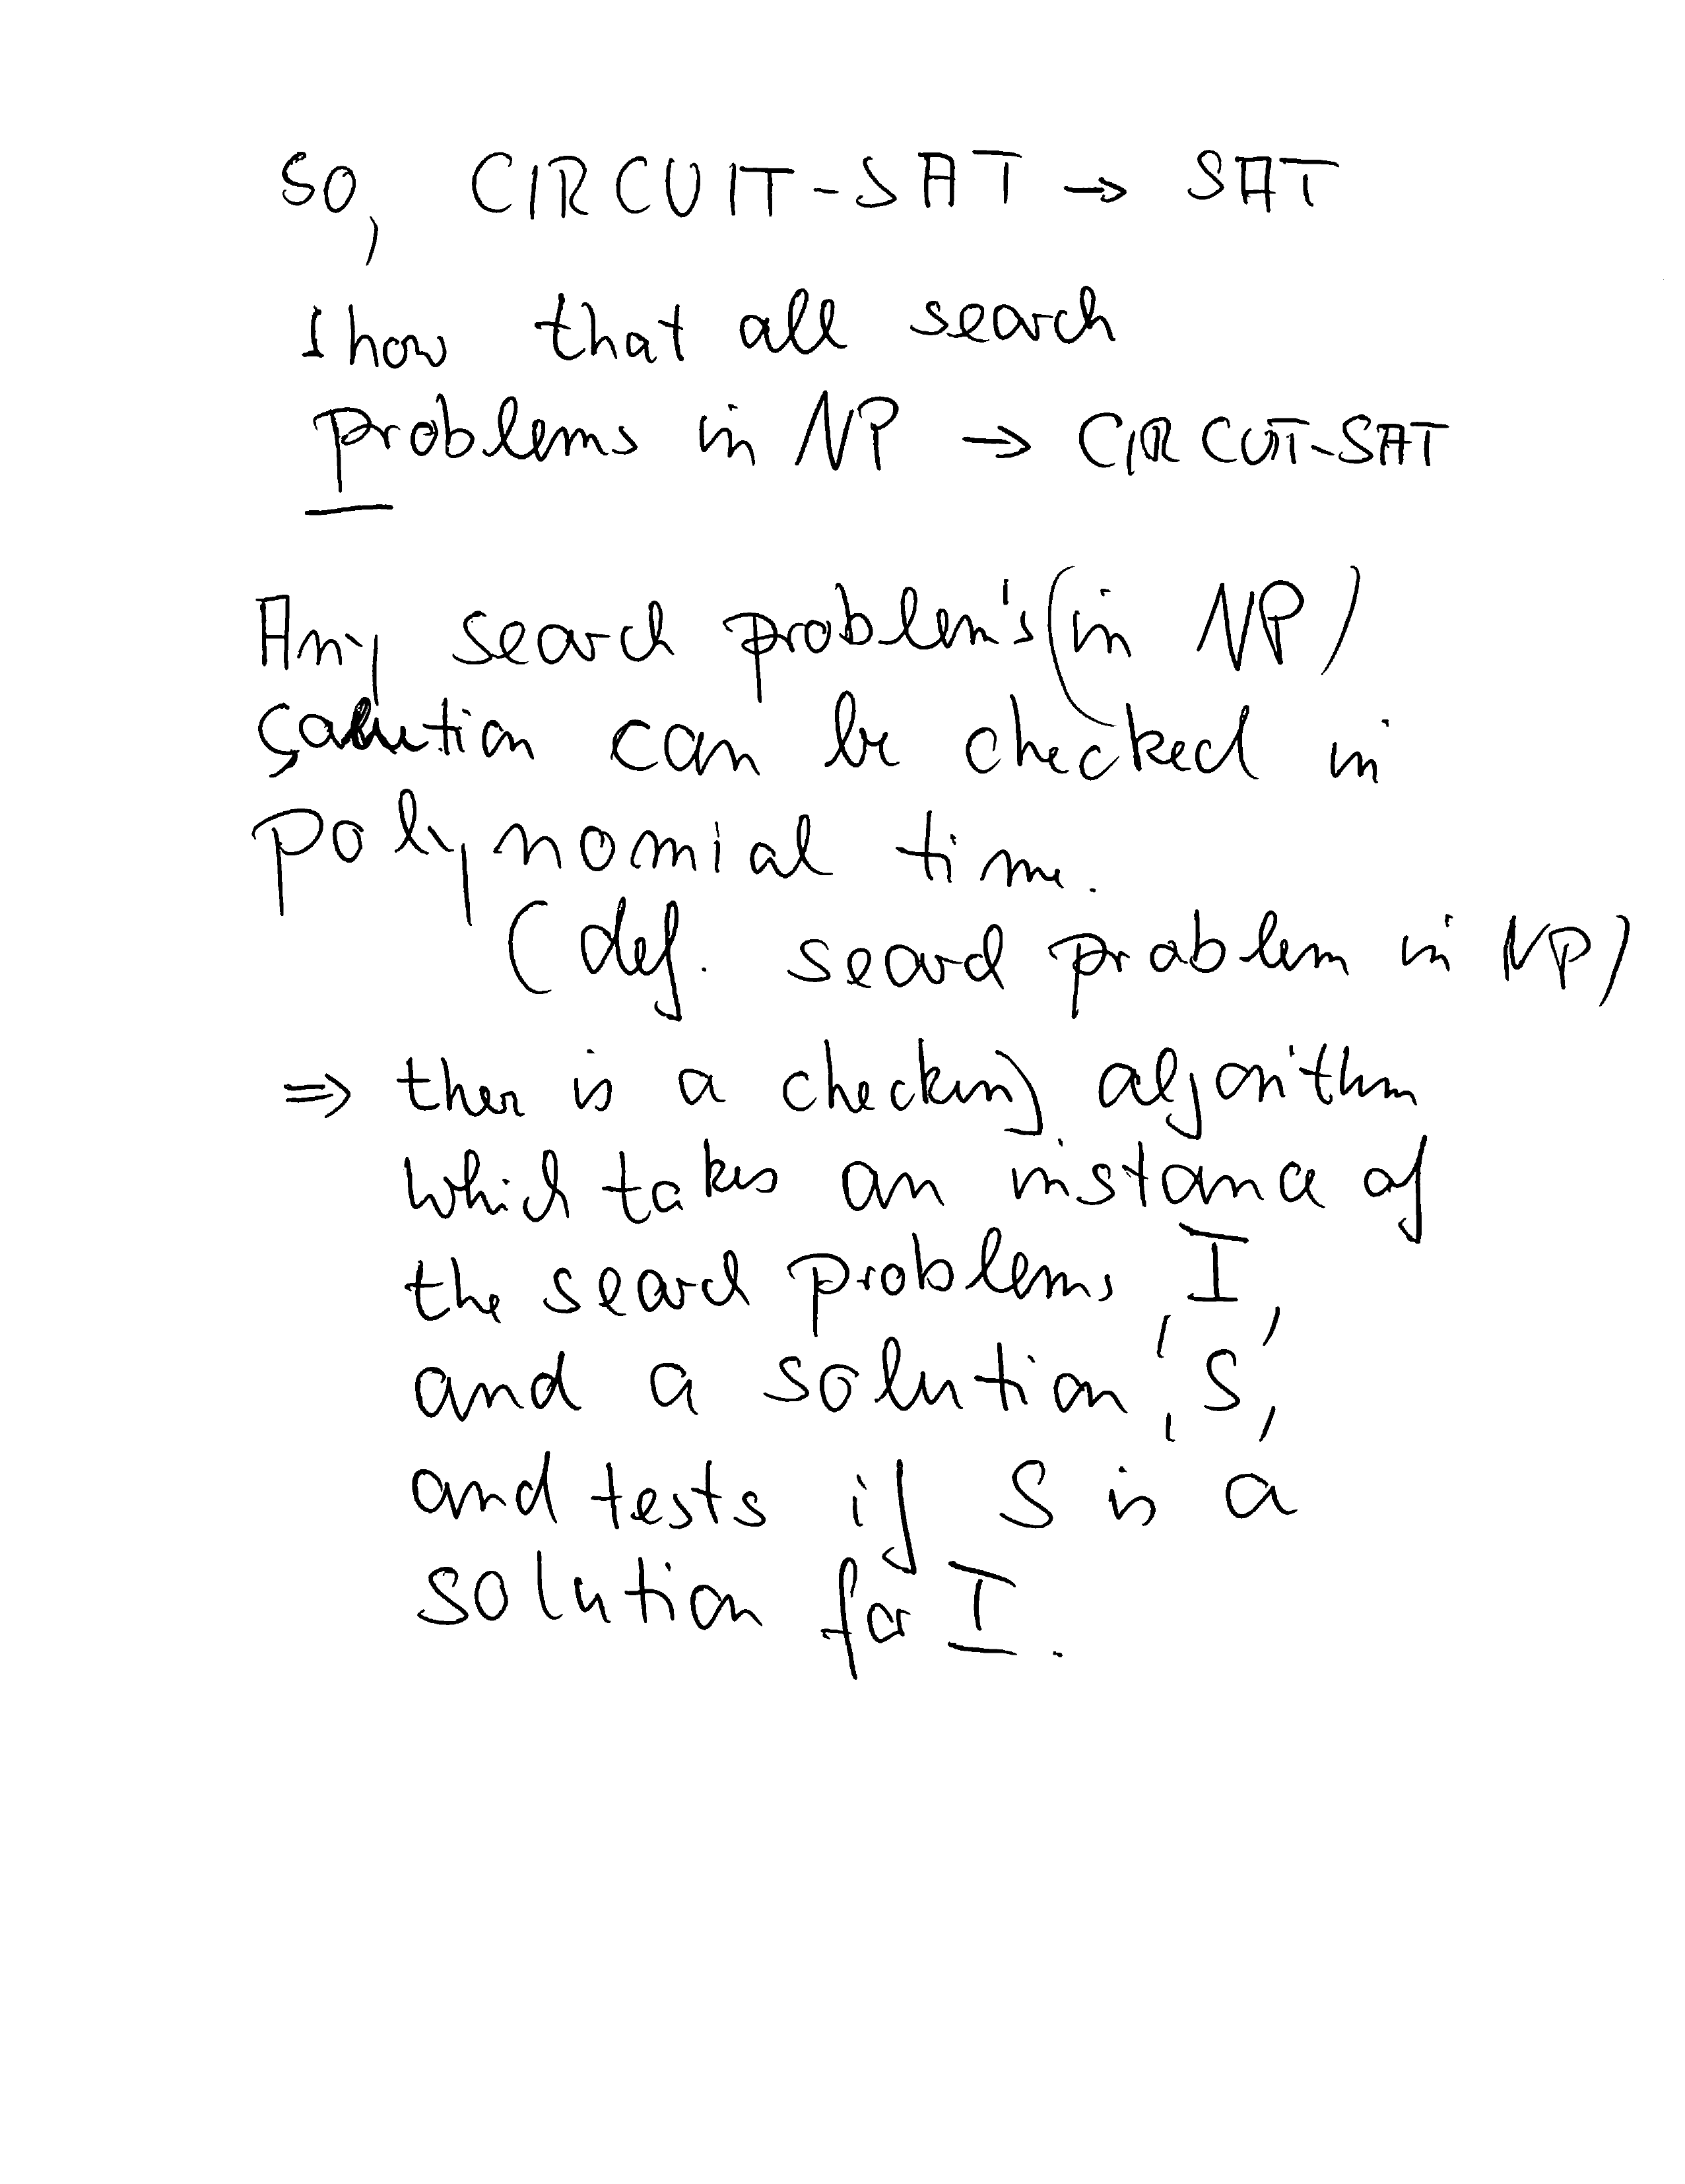 So, CIRCUIT-SAT → SAT
Show that all search
problems in NP → CIRCUIT-SAT
Any search problem's (in NP)
solution can be checked in
polynomial time.
(def. search problem in NP)
⇒ ther is a checking algorithm
which takes an instance of
the search problems, I,
and a solution, S,
and tests if S is a
solution for I.